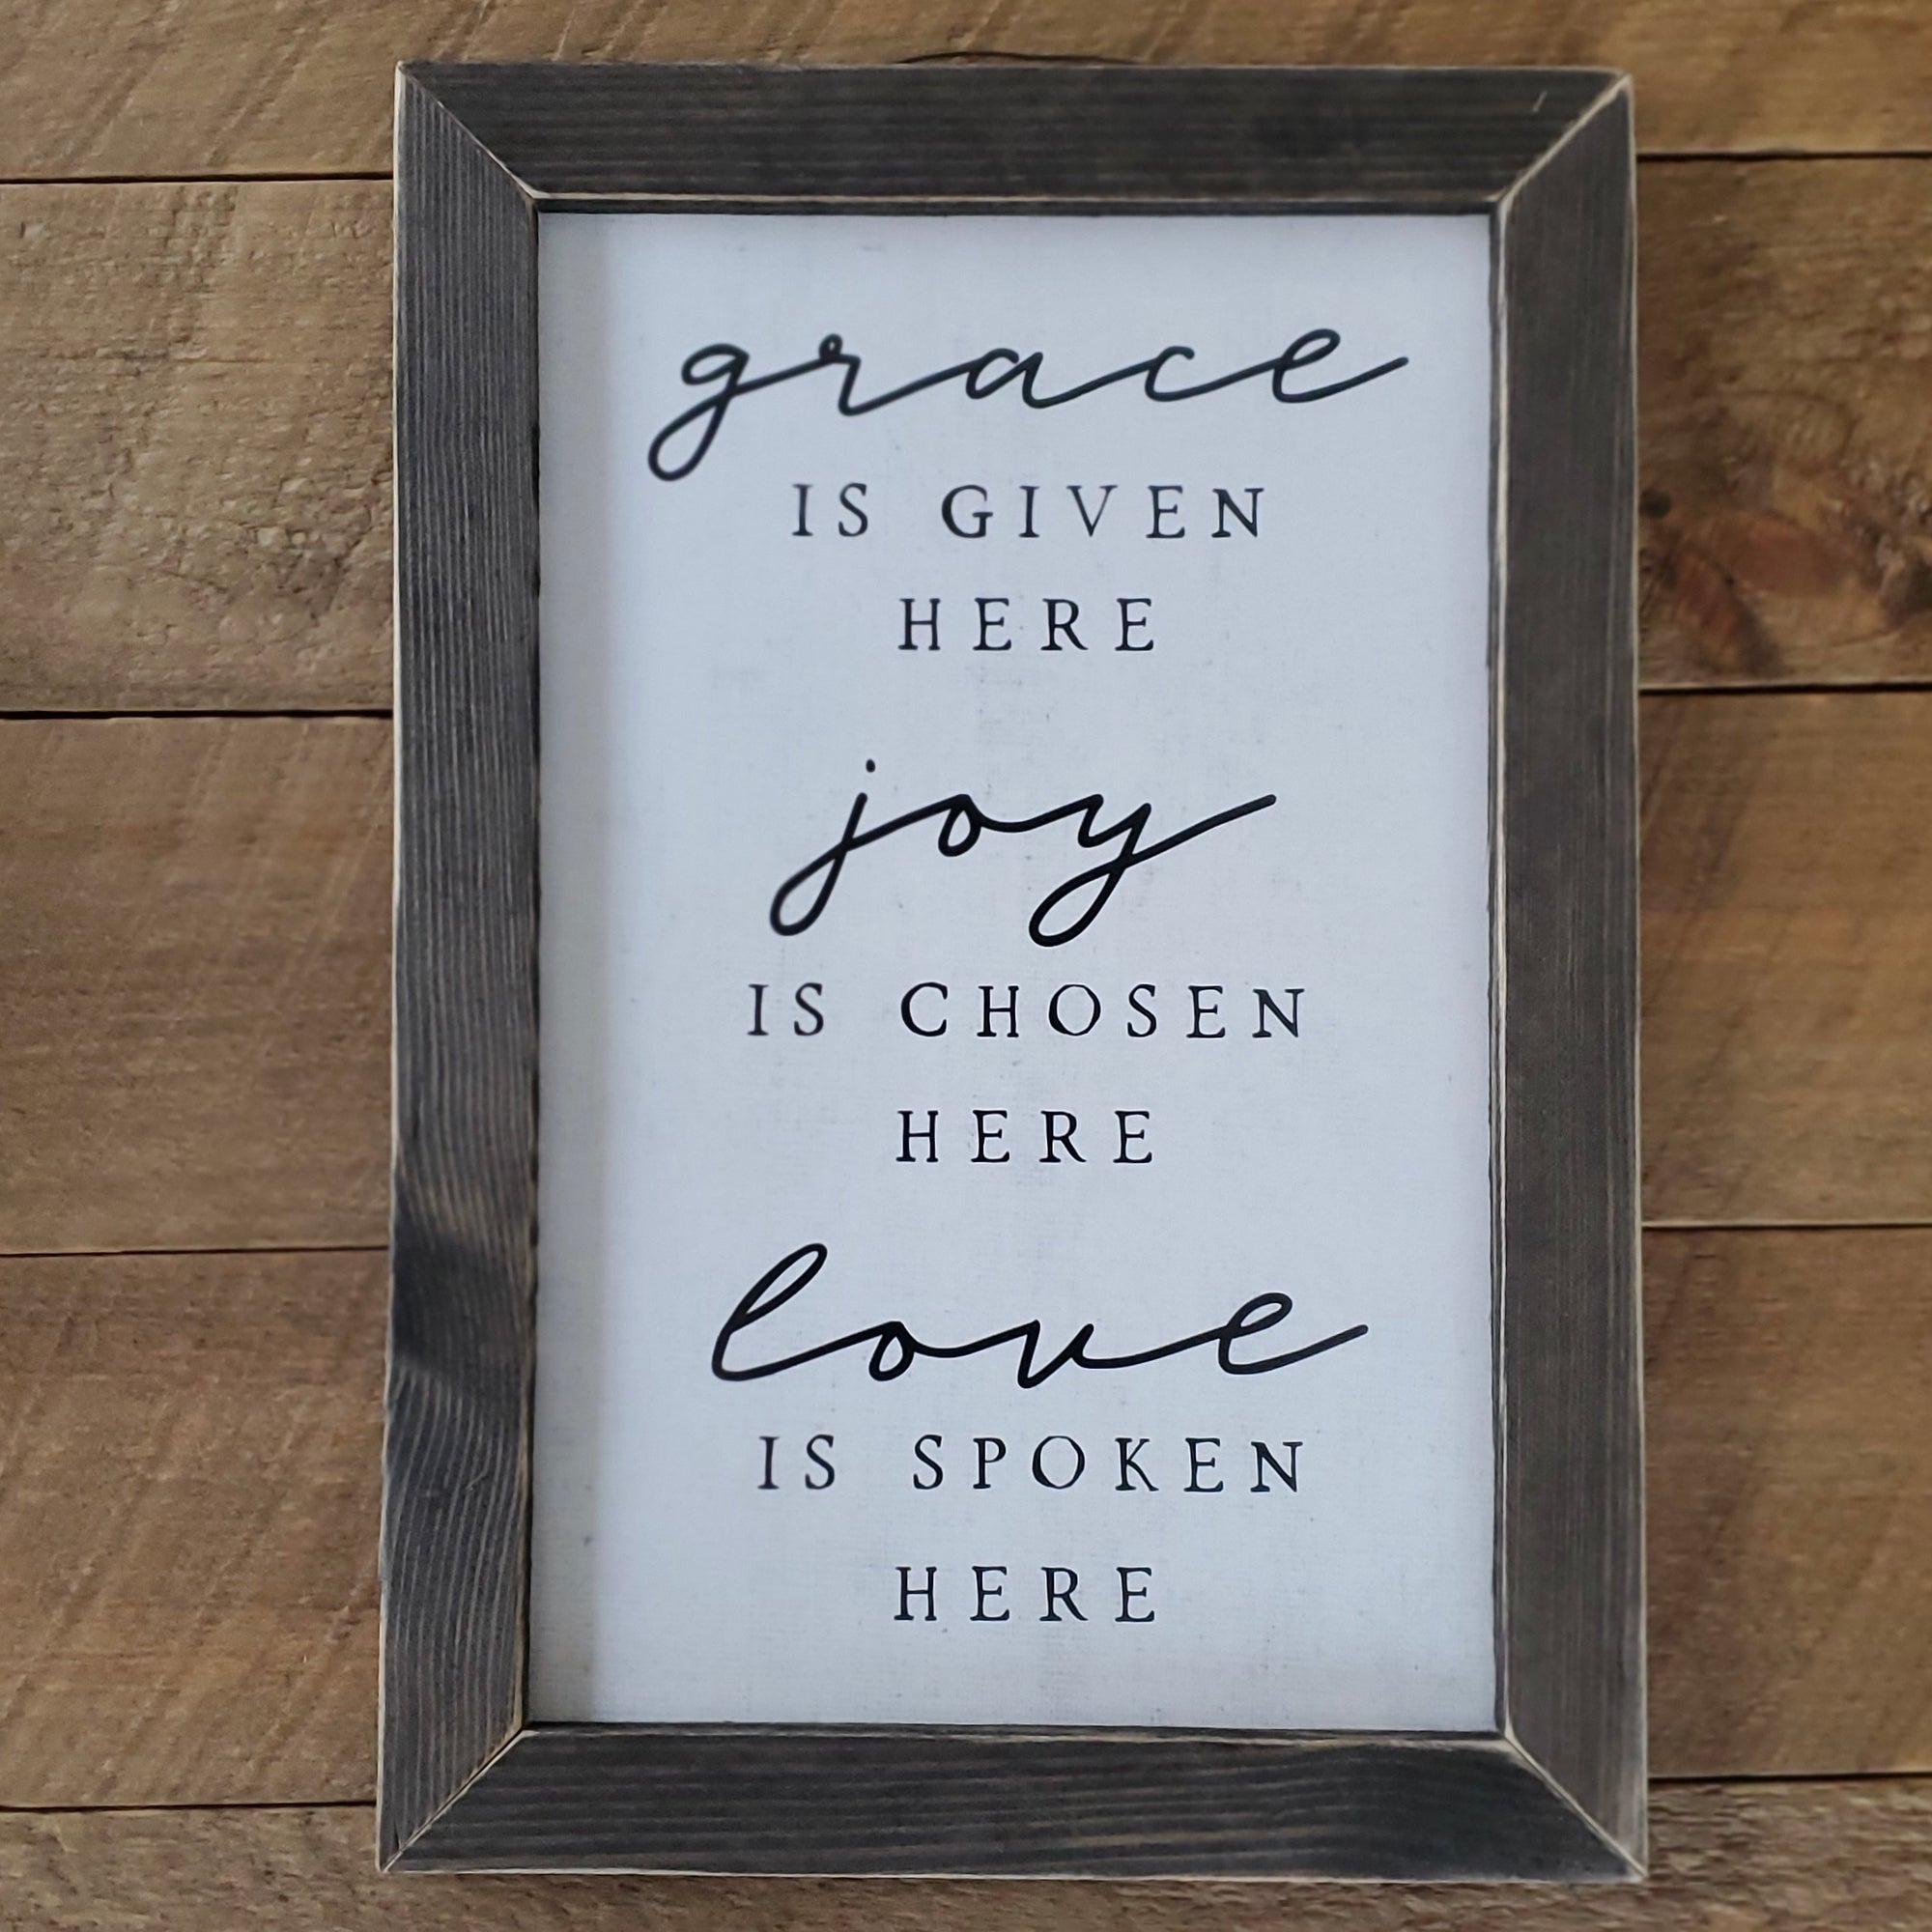 grace
IS GIVEN
HERE
joy
IS CHOSEN
HERE
love
IS SPOKEN
HERE